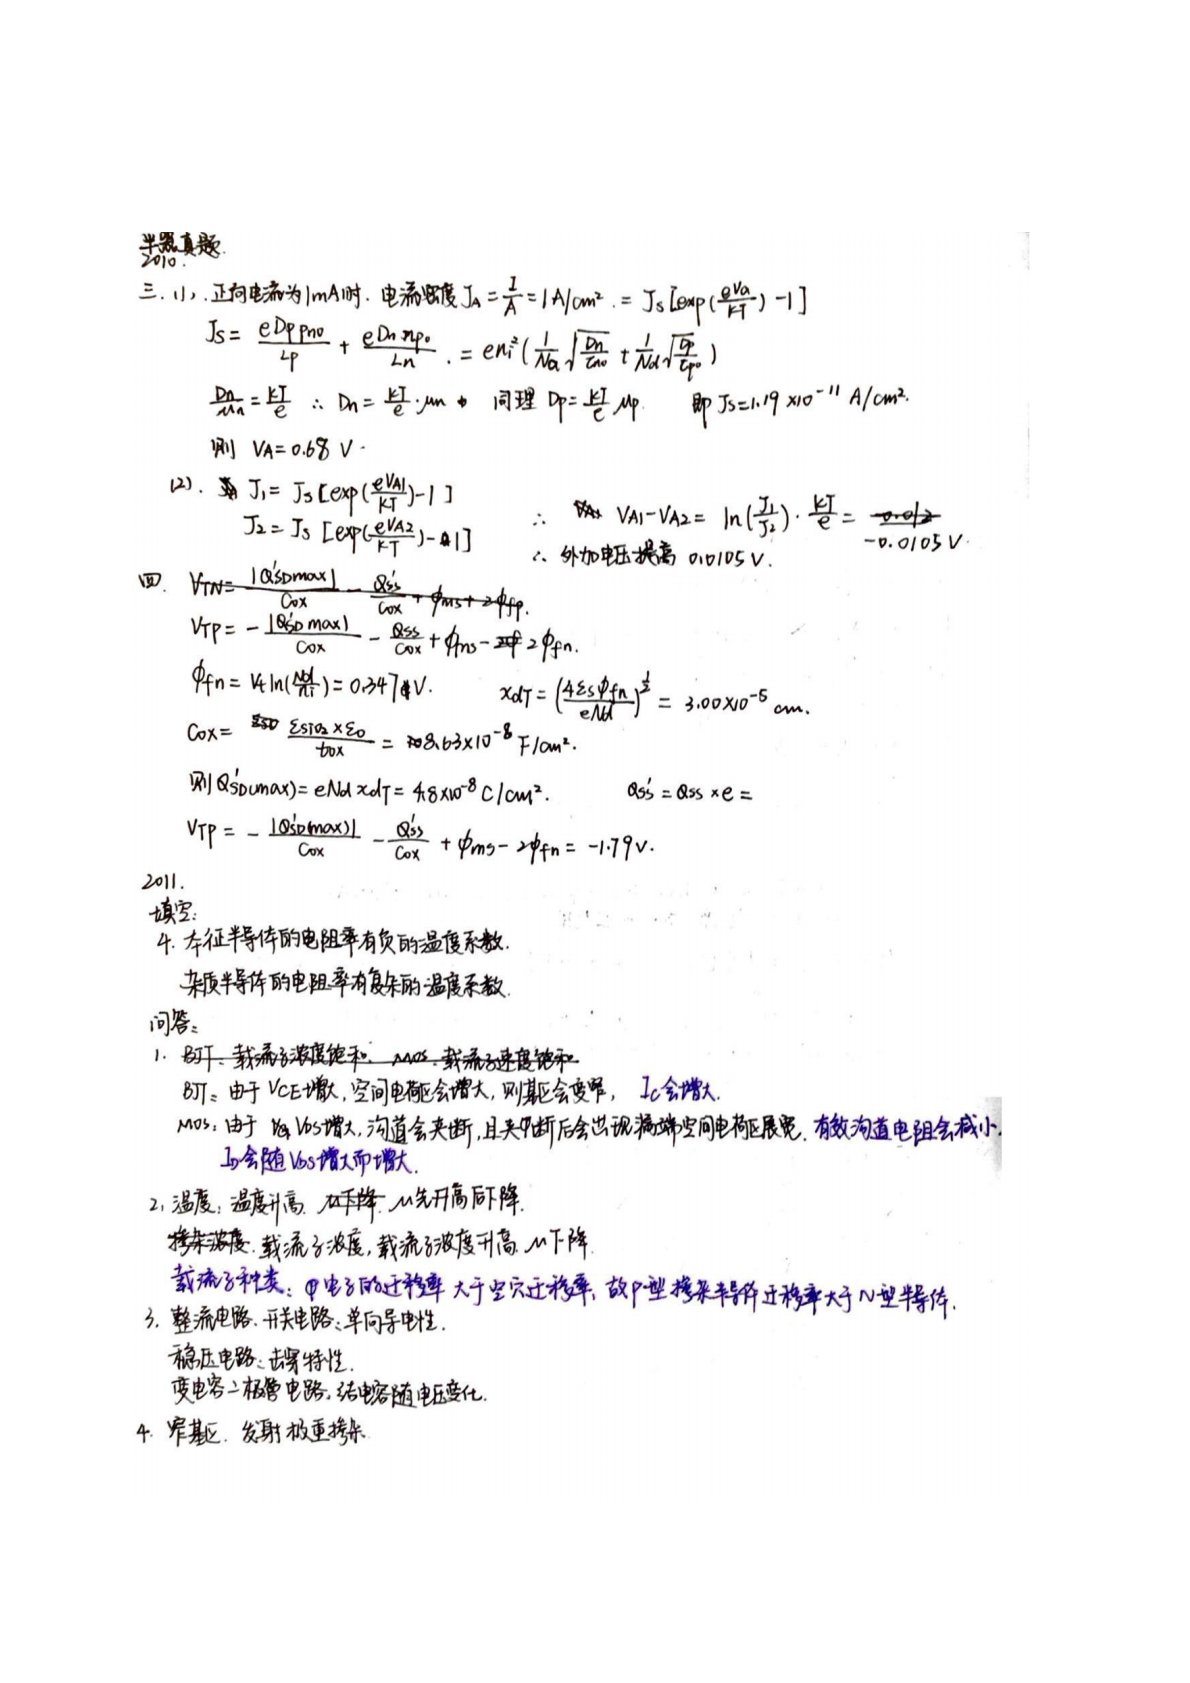 半器真题.
2010.
三. (1). 正向电流为1mA时. 电流密度 J_A = I/A = 1A/cm². = J_S[exp(eVa/kT) -1]
J_S = eDp pno/Lp + eDn npo/Ln. = eni²(1/Na √(Dn/τno) + 1/Nd √(Dp/τpo))
Dn/μn = kT/e ∴ Dn = kT/e · μn 同理 Dp = kT/e μp. 即 Js=1.19×10⁻¹¹ A/cm².
则 VA=0.68 V.
(2). J₁ = Js[exp(eVA1/kT)-1]
J₂ = Js [exp(eVA2/kT)-1] ∴ VA1-VA2 = ln(J₁/J₂)·kT/e = -0.0105V.
∴ 外加电压提高 0.0105V.
四. VTN = |Q'SDmax|/Cox - Q'ss/Cox + φms + 2φfp.
VTP = - |Q'SDmax|/Cox - Qss/Cox + φms - 2φfn.
φfn = Vt ln(Nd/ni) = 0.347V. xdT = (4εsφfn/eNd)^½ = 3.00×10⁻⁵ cm.
Cox = εsio₂×ε₀/tox = 8.63×10⁻⁸ F/cm².
则 Q'SD(max) = eNd xdT = 4.8×10⁻⁸ C/cm². Q'ss = Qss × e =
VTP = - |Q'SD(max)|/Cox - Q'ss/Cox + φms - 2φfn = -1.79V.
2011.
填空:
4. 本征半导体的电阻率有负的温度系数.
杂质半导体的电阻率有复杂的温度系数.
问答:
1. BJT: 载流子浓度饱和. MOS: 载流子速度饱和
BJT: 由于VCE增大, 空间电荷区会增大, 则基区会变窄, Ic会增大.
MOS: 由于 VDS增大, 沟道会夹断, 且夹断后会出现漏端空间电荷区展宽. 有效沟道电阻会减小.
ID会随VDS增大而增大.
2, 温度: 温度升高. μ下降. μ先升高后下降.
掺杂浓度. 载流子浓度, 载流子浓度升高. μ下降.
载流子种类: 电子的迁移率大于空穴迁移率, 故P型掺杂半导体迁移率大于N型半导体.
3. 整流电路. 开关电路: 单向导电性.
稳压电路: 击穿特性.
变电容二极管电路: 结电容随电压变化.
4. 窄基区. 发射极重掺杂.